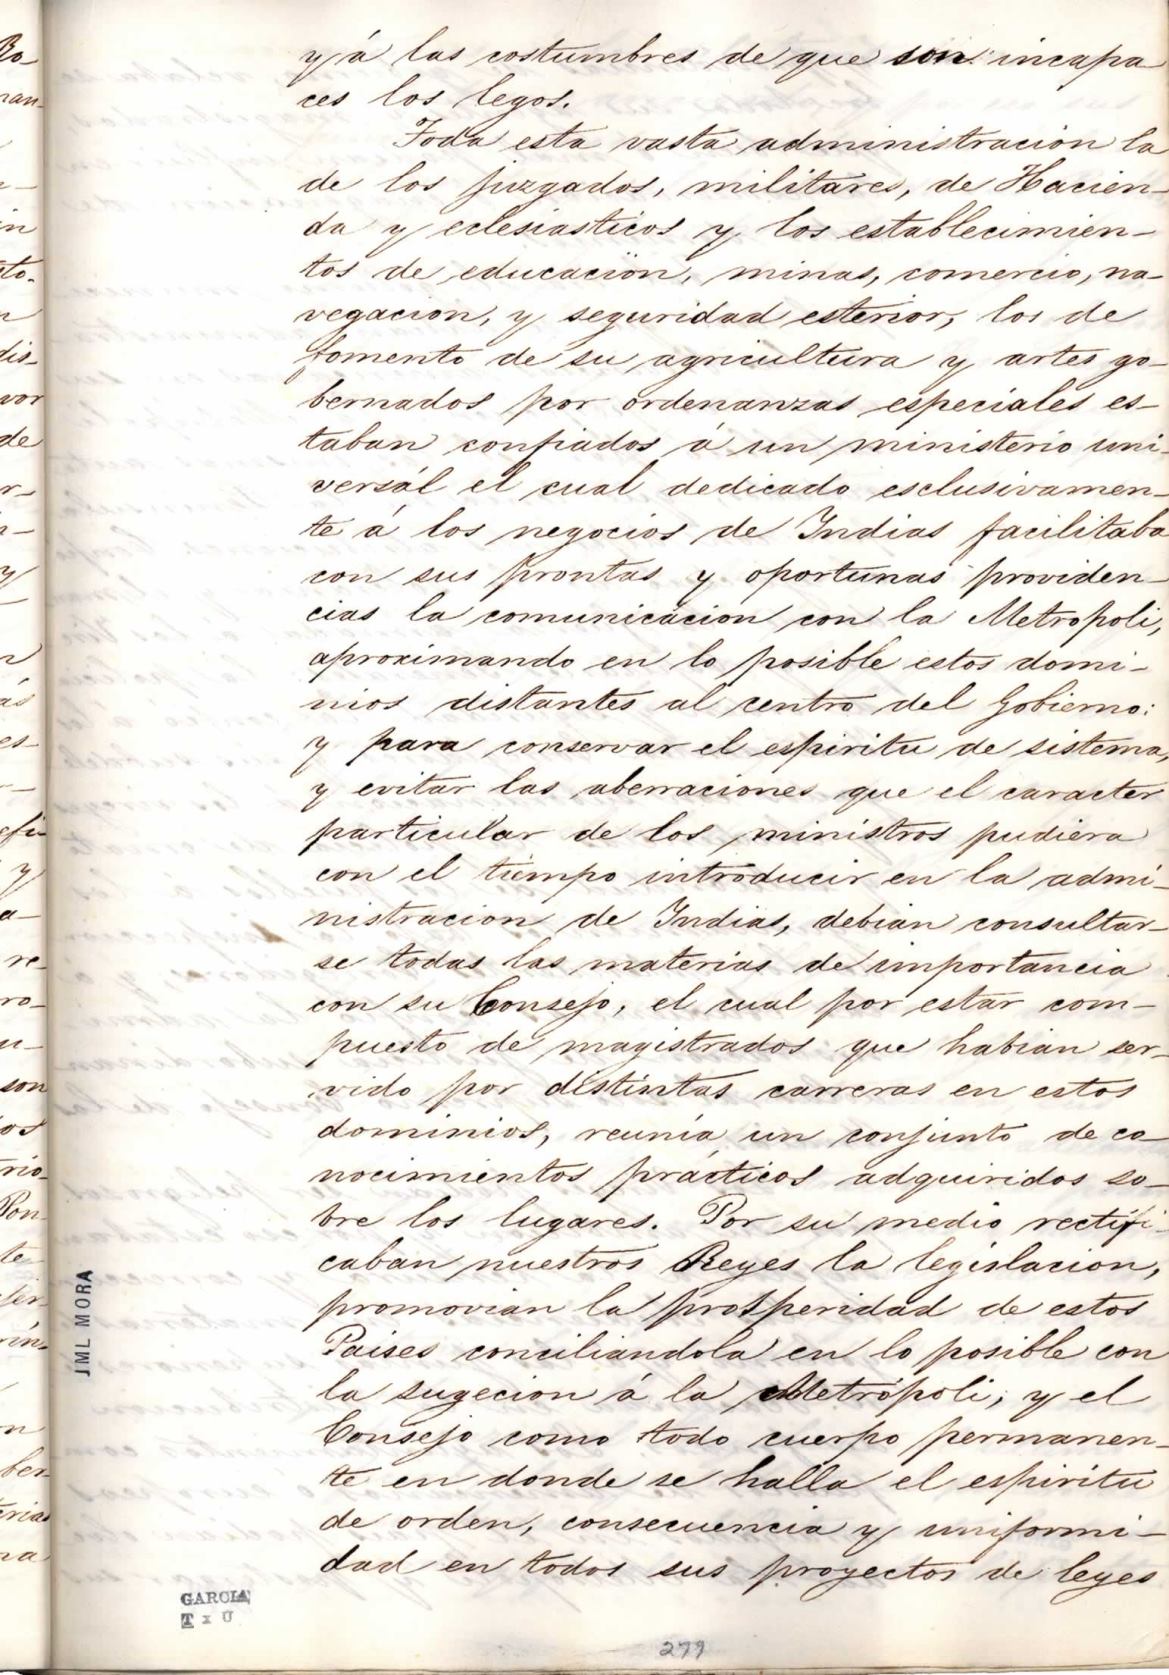 y á las costumbres de que son incapa
ces los legos.
Toda esta vasta administración la
de los juzgados, militares, de Hacien-
da y eclesiasticos y los establecimien-
tos de educación, minas, comercio, na-
vegacion, y seguridad esterior, los de
fomento de su agricultura y artes go-
bernados por ordenanzas especiales es-
taban confiados á un ministerio uni-
versál el cual dedicado esclusivamen-
te á los negocios de Indias facilitaba
con sus prontas y oportunas providen-
cias la comunicacion con la Metropoli,
aproximando en lo posible estos domi-
nios distantes al centro del Gobierno:
y para conservar el espiritu de sistema,
y evitar las aberraciones que el caracter
particular de los ministros pudiera
con el tiempo introducir en la admi-
nistracion de Indias, debian consultar-
se todas las materias de importancia
con su Consejo, el cual por estar com-
puesto de magistrados que habian ser-
vido por distintas carreras en estos
dominios, reunia un conjunto de co-
nocimientos prácticos adquiridos so-
bre los lugares. Por su medio rectifi-
caban nuestros Reyes la legislacion,
promovian la prosperidad de estos
Paises conciliandola en lo posible con
la sugecion á la Metrópoli; y el
Consejo como todo cuerpo permanen-
te en donde se halla el espiritu
de orden, consecuencia y uniformi-
dad en todos sus proyectos de leyes
JML MORA
GARCIA
279